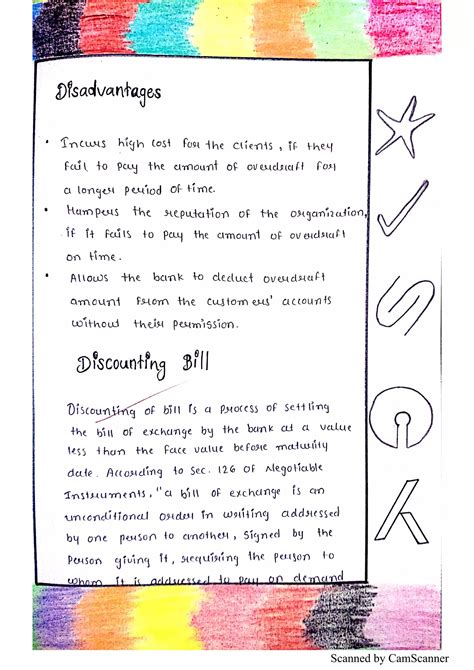 Disadvantages
• Incurs high cost for the clients, if they
fail to pay the amount of overdraft for
a longer period of time.
• Hampers the reputation of the organization,
if it fails to pay the amount of overdraft
on time.
• Allows the bank to deduct overdraft
amount from the customers' accounts
without their permission.
Discounting Bill
Discounting of bill is a process of settling
the bill of exchange by the bank at a value
less than the face value before maturity
date. According to Sec. 126 of Negotiable
Instruments, "a bill of exchange is an
unconditional order in writing addressed
by one person to another, signed by the
person giving it, requiring the person to
whom it is addressed to pay on demand
Scanned by CamScanner